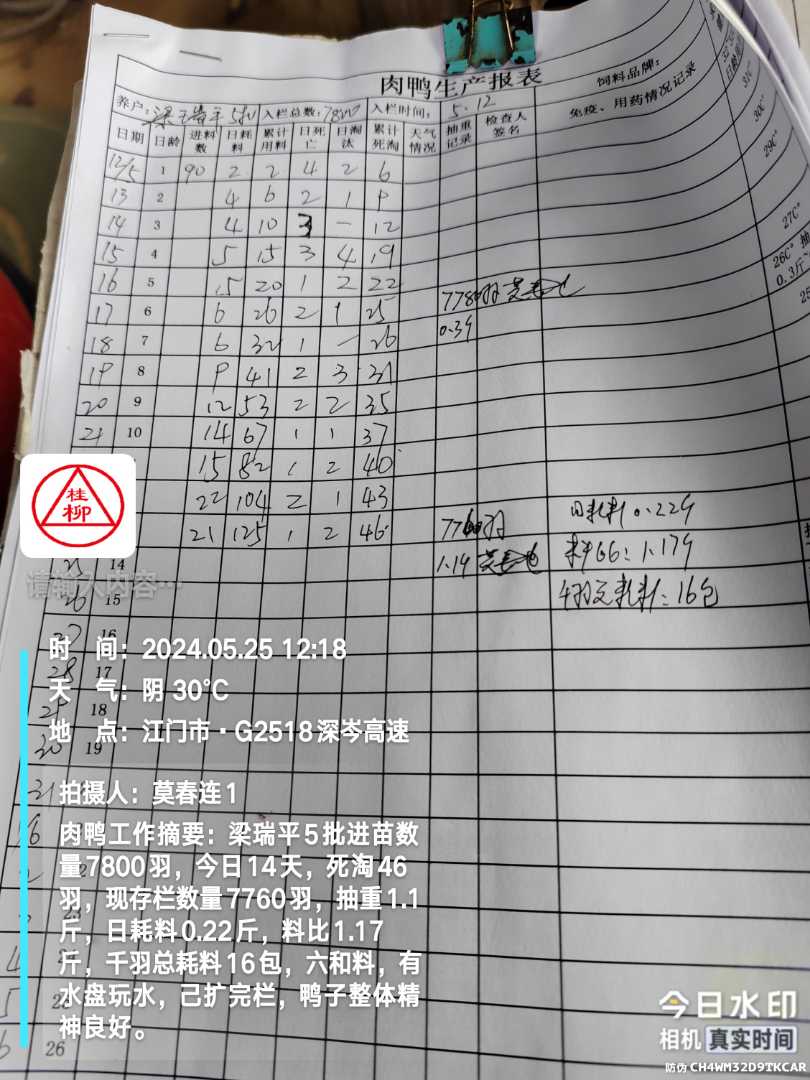 肉鸭生产报表
养户: 梁瑞平5批 入栏总数: 7800 入栏时间: 5.12 饲料品牌:
日期 日龄 进料数 日耗料 累计用料 日死亡 日淘汰 累计死淘 天气情况 抽重记录 检查人签名 免疫、用药情况记录
12/5 1 90 2 2 4 2 6
13 2 4 6 2 1 9
14 3 4 10 3 - 12
15 4 5 15 3 4 19
16 5 15 20 1 2 22
17 6 6 26 2 1 25 7780羽 莫春连
18 7 6 32 1 - 26 0.39
19 8 9 41 2 3 31
20 9 12 53 2 2 35
21 10 14 67 1 1 37
15 82 1 2 40
22 104 2 1 43 日耗料0.229
21 125 1 2 46 7760羽
14 1.14 莫春连 料比: 1.179
15 千羽总耗料: 16包
27 16
28 17
18
19
31
26
31C°
30C°
29C°
27C°
26C° 抽
0.3斤
桂柳
请输入内容…
时 间: 2024.05.25 12:18
天 气: 阴 30℃
地 点: 江门市·G2518深岑高速
拍摄人: 莫春连1
肉鸭工作摘要: 梁瑞平5批进苗数
量7800羽, 今日14天, 死淘46
羽, 现存栏数量7760羽, 抽重1.1
斤, 日耗料0.22斤, 料比1.17
斤, 千羽总耗料16包, 六和料, 有
水盘玩水, 己扩完栏, 鸭子整体精
神良好。
今日水印
相机 真实时间
防伪 CH4WM32D9TKCAR